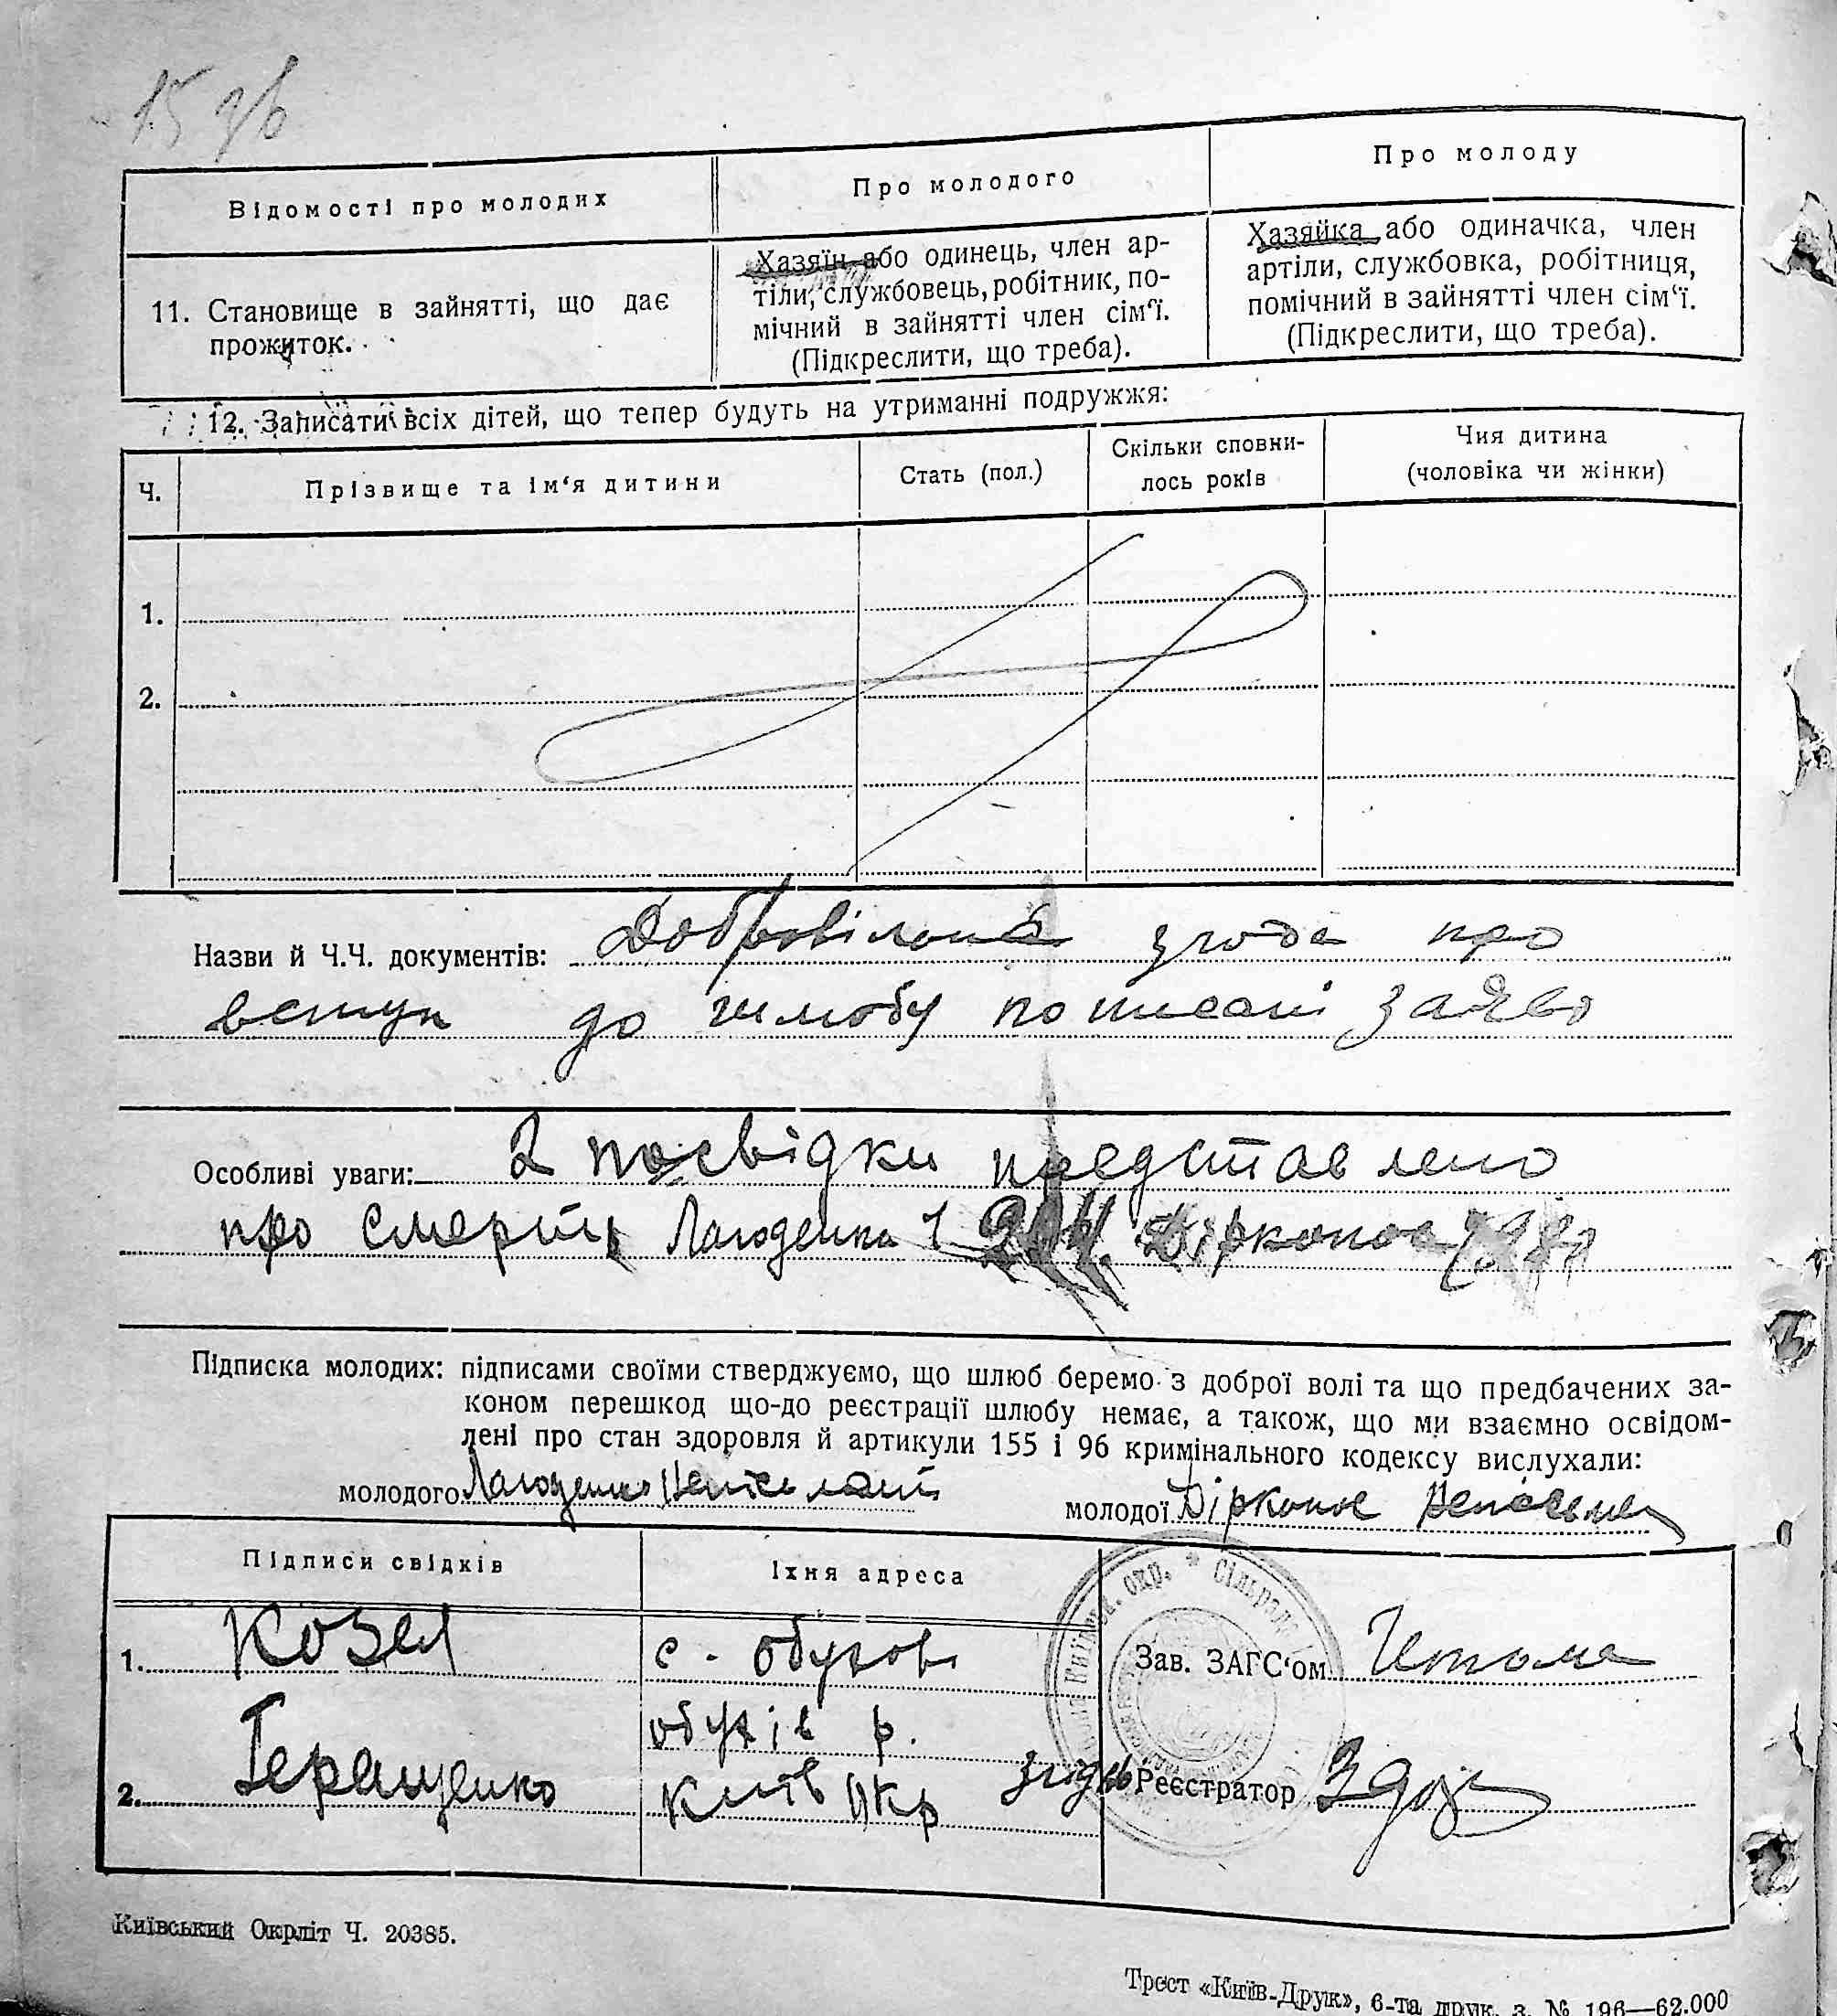 15 зв
Відомості про молодих
Про молодого
Про молоду
11. Становище в зайнятті, що дає
прожиток.
Хазяїн або одинець, член ар-
тіли, службовець, робітник, по-
мічний в зайнятті член сім‘ї.
(Підкреслити, що треба).
Хазяйка або одиначка, член
артіли, службовка, робітниця,
помічний в зайнятті член сім‘ї.
(Підкреслити, що треба).
12. Записати всіх дітей, що тепер будуть на утриманні подружжя:
Ч.
Прізвище та ім‘я дитини
Стать (пол.)
Скільки сповни-
лось років
Чия дитина
(чоловіка чи жінки)
1.
2.
Назви й Ч.Ч. документів: Добровільна згода про
вступ до шлюбу по писані заяво
Особливі уваги: 2 посвідки представлено
про смерть Лагоденка
Підписка молодих: підписами своїми стверджуємо, що шлюб беремо з доброї волі та що предбачених за-
коном перешкод що-до реєстрації шлюбу немає, а також, що ми взаємно освідом-
лені про стан здоровля й артикули 155 і 96 кримінального кодексу вислухали:
молодого Лагоденко Неписьмент
молодої Дірконос Неписьмен
Підписи свідків
Їхня адреса
1. Козел
с. Обухов
Зав. ЗАГС‘ом
Обухів р.
2. Геращенко
Київ Окр
Реєстратор
окр. * Сільрада
Київський Окрліт Ч. 20385.
Трест «Київ-Друк», 6-та друк. з. № 196—62.000